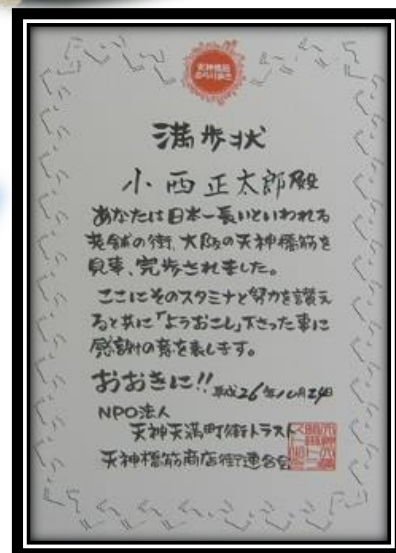 天神橋筋
ぶらりあるき
満歩状
小西正太郎殿
あなたは日本一長いといわれる
老舗の街、大阪の天神橋筋を
見事、完歩されました。
ここにそのスタミナと努力を讃え
ると共に「ようおこし」下さった事に
感謝の意を表します。
おおきに!! 平成26年10月24日
NPO法人
天神天満町街トラスト
天神橋筋商店街連合会